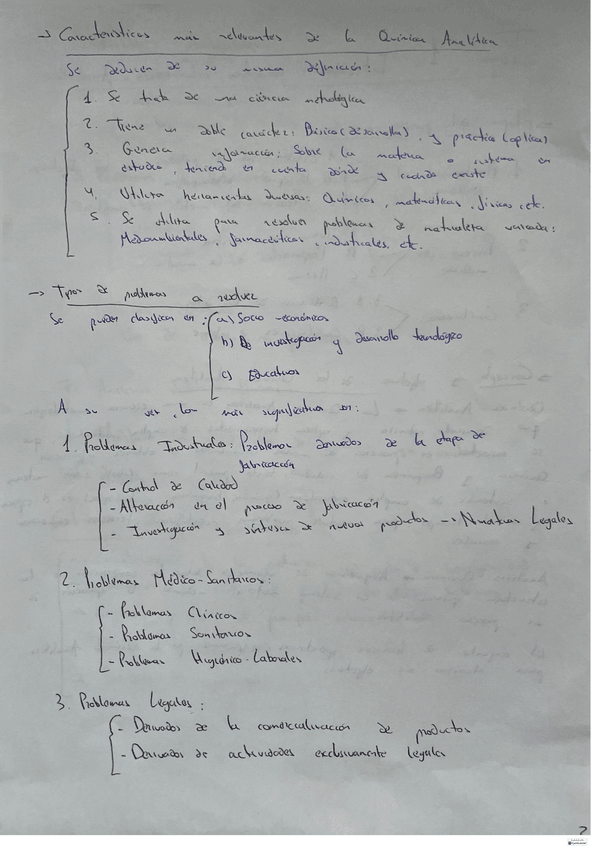 → Características más relevantes de la Química Analítica
Se deducen de su misma definición:
1. Se trata de una ciencia metrológica
2. Tiene un doble carácter: Básico (desarrolla), y práctico (aplica)
3. Genera información: Sobre la materia o sistema en
estudio, teniendo en cuenta dónde y cuando existe
4. Utiliza herramientas diversas: Químicas, matemáticas, físicas, etc.
5. Se utiliza para resolver problemas de naturaleza variada:
Medioambientales, farmacéuticos, industriales, etc.
→ Tipos de problemas a resolver
Se pueden clasificar en: a) Socio-económicos
b) De investigación y desarrollo tecnológico
c) Educativos
A su vez, los más significativos son:
1. Problemas Industriales: Problemas derivados de la etapa de
fabricación
- Control de Calidad
- Alteración en el proceso de fabricación
- Investigación y síntesis de nuevos productos → Normativas Legales
2. Problemas Médico-Sanitarios:
- Problemas Clínicos
- Problemas Sanitarios
- Problemas Higiénico-Laborales
3. Problemas Legales:
- Derivados de la comercialización de productos
- Derivados de actividades exclusivamente legales